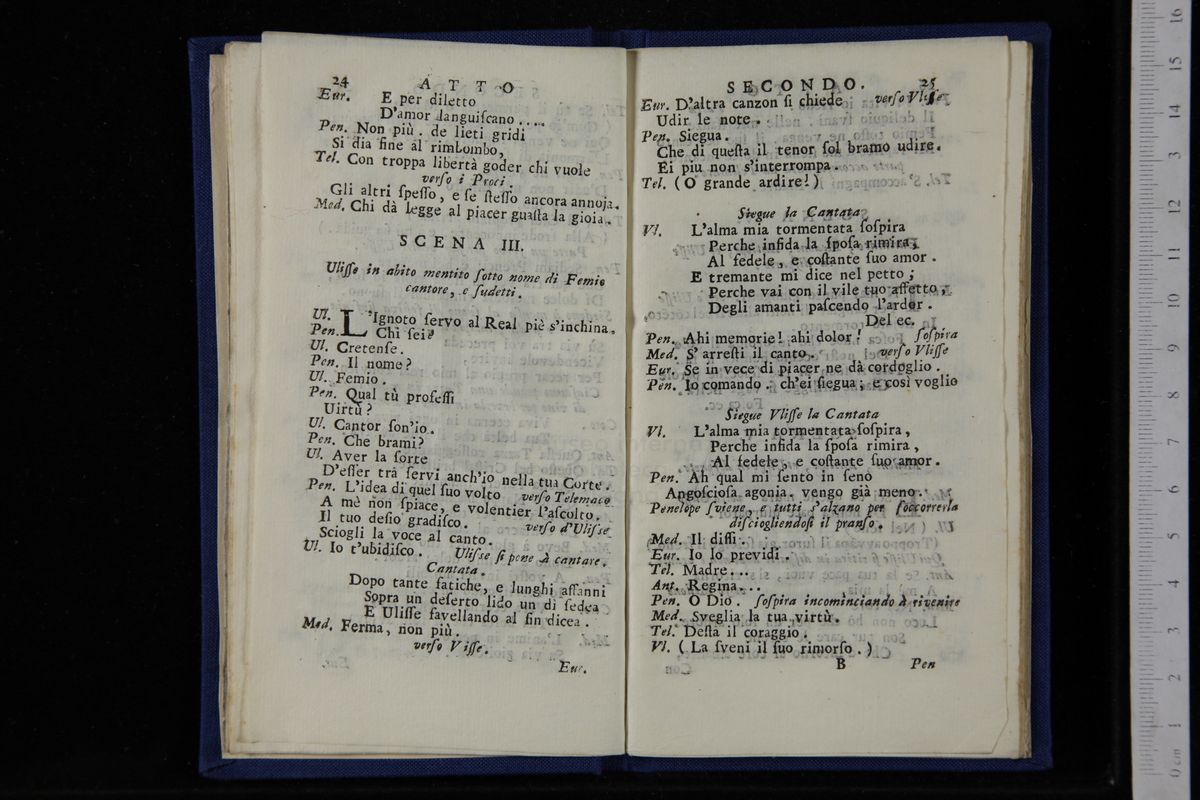 24 ATTO
Eur. E per diletto
D'amor languiſcano ....
Pen. Non più. de lieti gridi
Si dia fine al rimbombo,
Tel. Con troppa libertà goder chi vuole
verſo i Proci.
Gli altri ſpeſſo, e ſe ſteſſo ancora annoja.
Med. Chi dà legge al piacer guaſta la gioia.
SCENA III.
Uliſſe in abito mentito ſotto nome di Femio
cantore, e ſudetti.
Ul. L'Ignoto ſervo al Real piè s'inchina,
Pen. Chi ſei?
Ul. Cretenſe.
Pen. Il nome?
Ul. Femio.
Pen. Qual tù profeſſi
Uirtù?
Ul. Cantor ſon'io.
Pen. Che brami?
Ul. Aver la ſorte
D'eſſer trà ſervi anch'io nella tua Corte.
Pen. L'idea di quel ſuo volto verſo Telemaco
A mè non ſpiace, e volentier l'aſcolto.
Il tuo deſio gradiſco. verſo d'Uliſse
Sciogli la voce al canto.
Ul. Io t'ubidiſco. Uliſse ſi pone à cantare.
Cantata.
Dopo tante fatiche, e lunghi affanni
Sopra un deſerto lido un dì ſedea
E Uliſſe favellando al fin dicea.
Med. Ferma, non più.
verſo Viſſe.
Eur.
SECONDO. 25
Eur. D'altra canzon ſi chiede verſo Vliſſe
Udir le note.
Pen. Siegua.
Che di queſta il tenor ſol bramo udire.
Ei più non s'interrompa.
Tel. (O grande ardire!)
Siegue la Cantata
Vl. L'alma mia tormentata ſoſpira
Perche infida la ſpoſa rimira,
Al fedele, e coſtante ſuo amor.
E tremante mi dice nel petto;
Perche vai con il vile tuo affetto,
Degli amanti paſcendo l'ardor.
Del ec.
Pen. Ahi memorie! ahi dolor! ſoſpira
Med. S'arreſti il canto. verſo Vliſſe
Eur. Se in vece di piacer ne dà cordoglio.
Pen. Io comando. ch'ei ſiegua; e così voglio
Siegue Vliſſe la Cantata
Vl. L'alma mia tormentata ſoſpira,
Perche infida la ſpoſa rimira,
Al fedele, e coſtante ſuo amor.
Pen. Ah qual mi ſento in ſeno
Angoſcioſa agonia. vengo già meno.
Penelope ſviene, e tutti s'alzano per ſoccorrerla
diſciogliendoſi il pranſo.
Med. Il diſſi.
Eur. Io lo previdi.
Tel. Madre...
Ant. Regina...
Pen. O Dio. ſoſpira incominciando à rivenire
Med. Sveglia la tua virtù.
Tel. Deſta il coraggio.
Vl. (La ſveni il ſuo rimorſo.)
B Pen
0 cm 1 2 3 4 5 6 7 8 9 10 11 12 13 14 15 16